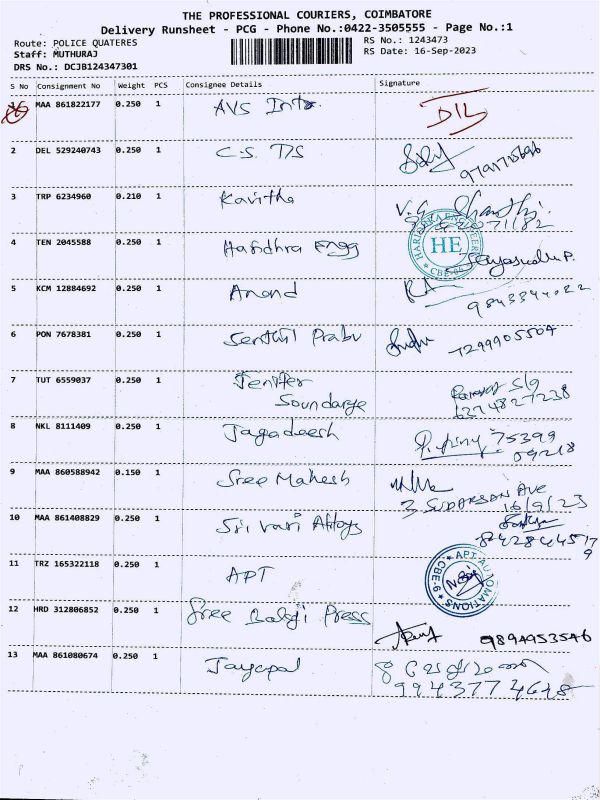 THE PROFESSIONAL COURIERS, COIMBATORE
Delivery Runsheet - PCG - Phone No.:0422-3505555 - Page No.:1
Route: POLICE QUATERES
RS No.: 1243473
Staff: MUTHURAJ
RS Date: 16-Sep-2023
DRS No.: DCJB124347301
S No Consignment No Weight PCS Consignee Details Signature
MAA 861822177 0.250 1 AVS Into. DIL
2 DEL 529240743 0.250 1 C.S. T/S
3 TRP 6234960 0.210 1 Kavitha V.G Shanthi.
4 TEN 2045588 0.250 1 Haridhra Engg
HE
5 KCM 12884692 0.250 1 Anand
6 PON 7678381 0.250 1 Senthil Prabu 7299905504
7 TUT 6559037 0.250 1 Jenifer
Soundarya 6374827238
8 NKL 8111409 0.250 1 Jagadeesh 75399
09218
9 MAA 860588942 0.150 1 Sree Mahesh
3, SUDARSON AVE
16/9/23
10 MAA 861408829 0.250 1 Sri vari Alloys
11 TRZ 165322118 0.250 1 APT
APT AUTOMATIONS
CBE-6
12 HRD 312806852 0.250 1 Sree Balaji Press
9894953546
13 MAA 861080674 0.250 1 Jayapal